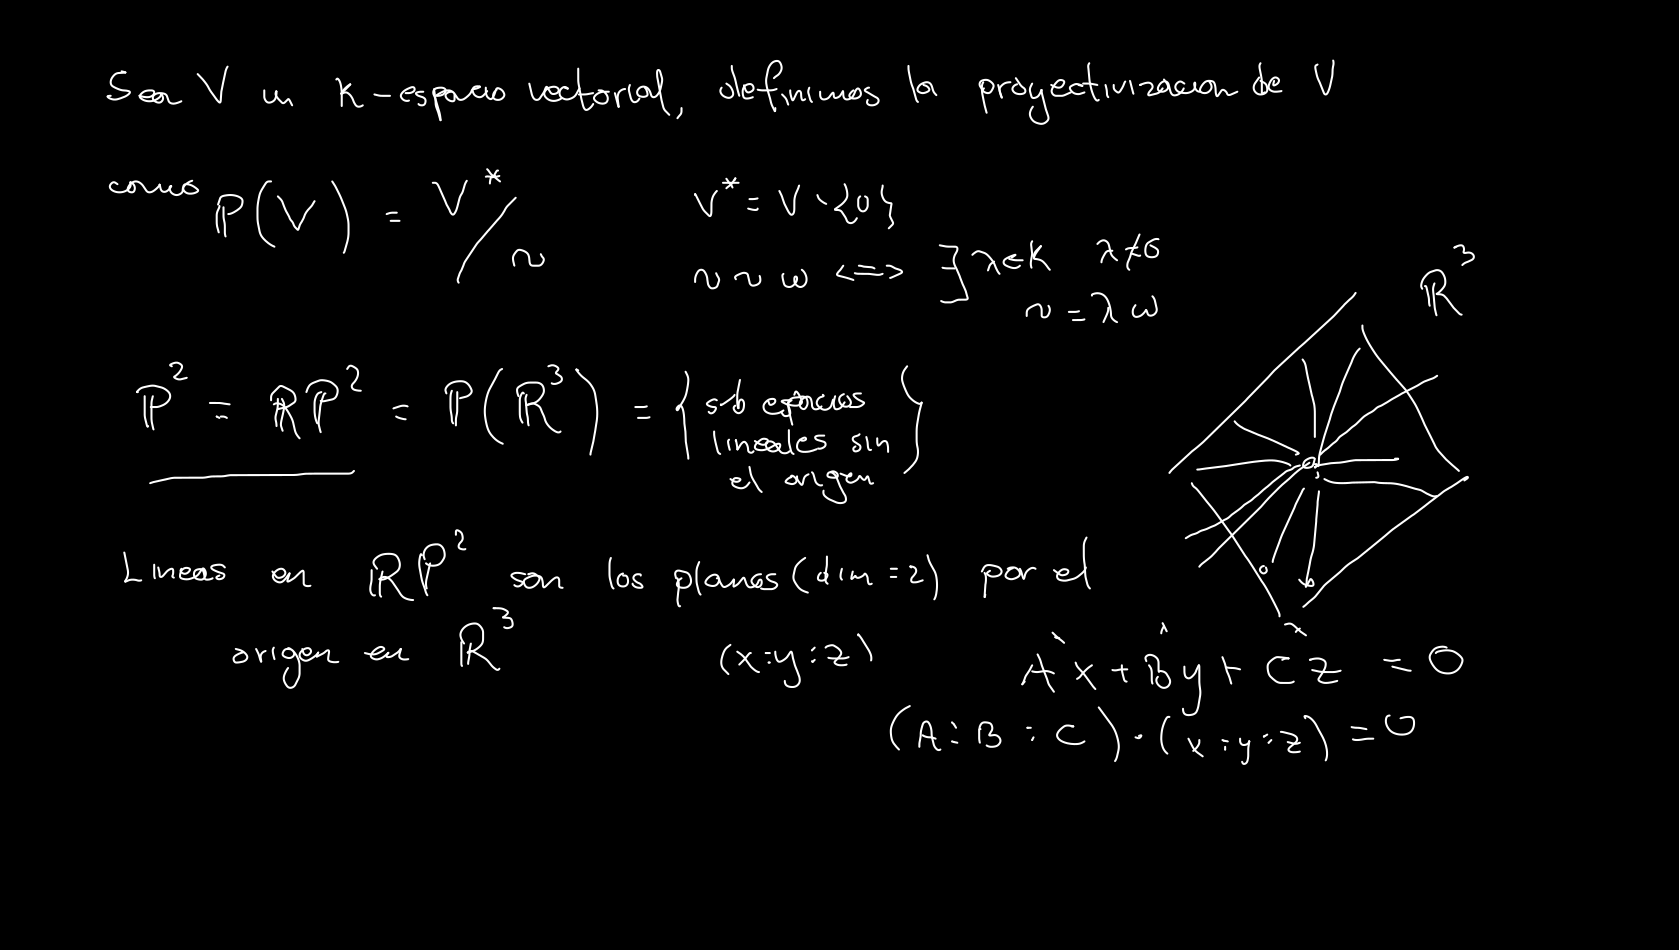 Sea V un K-espacio vectorial, definimos la proyectivizacion de V
como P(V) = V*/~ V* = V \ {0}
v ~ w <=> ∃ λ∈K λ≠0
v = λ w
ℝ³
ℙ² = ℝP² = P(ℝ³) = { sub espacios
lineales sin
el origen }
Lineas en ℝP² son los planos (dim = 2) por el
origen en ℝ³ (x:y:z) Ax + By + Cz = 0
(A:B:C)·(x:y:z) = 0